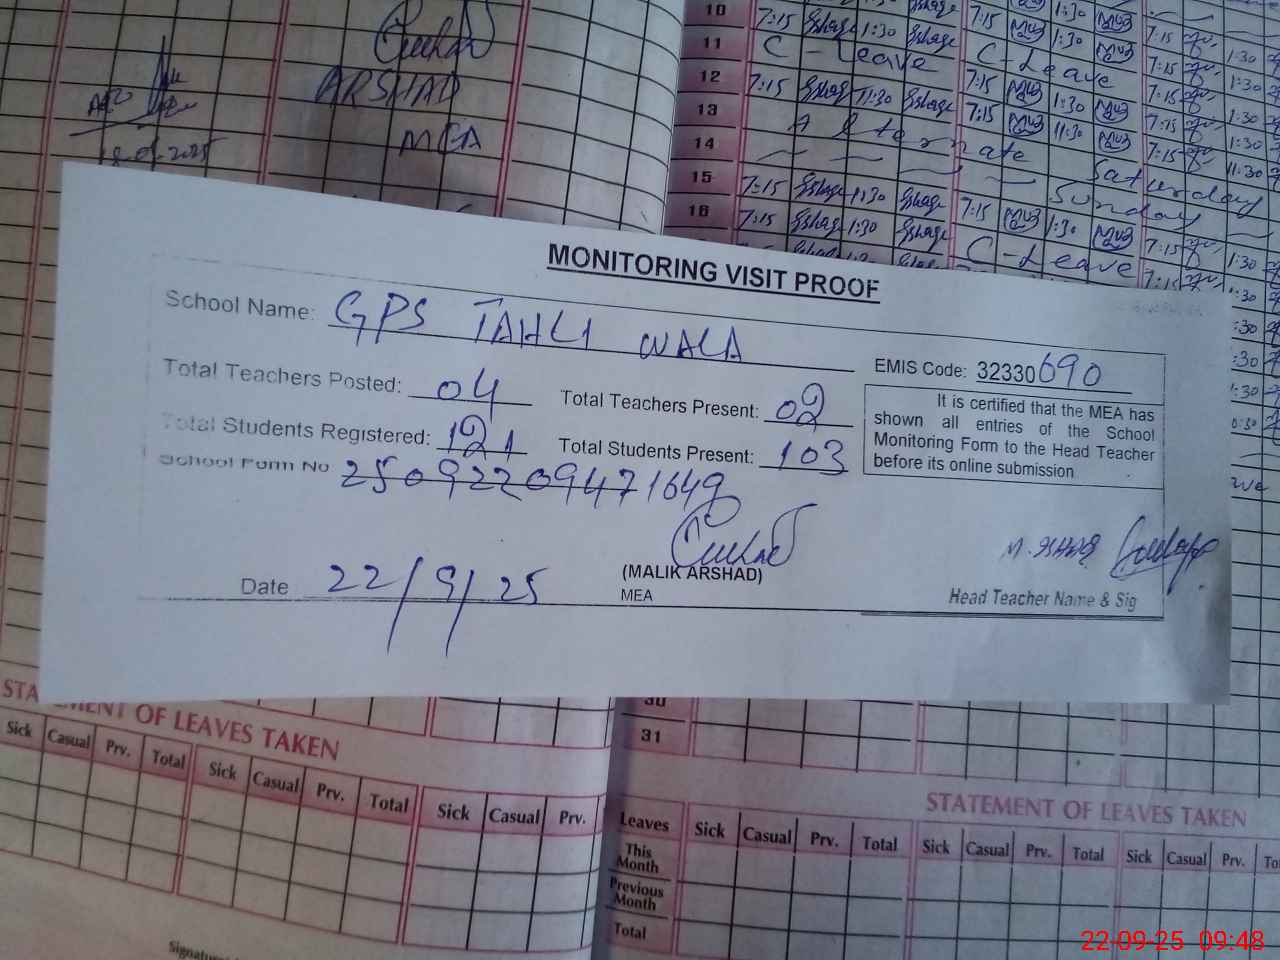 ARSHAD
MEA
10 7:15 1:30 7:15 1:30
11 C - Leave C - Leave 7:15 1:30
12 7:15 11:30 7:15 1:30 7:15 1:30
13 7:15 11:30 7:15 1:30
14 Alternate Saturday 7:15 11:30
15 7:15 1:30 Sunday
16 7:15 1:30 7:15 1:30 7:15 1:30
C - Leave
MONITORING VISIT PROOF
School Name: GPS TAHLI WALA
EMIS Code: 32330690
Total Teachers Posted: 04 Total Teachers Present: 02
Total Students Registered: 121 Total Students Present: 103
It is certified that the MEA has
shown all entries of the School
Monitoring Form to the Head Teacher
before its online submission
School Form No 25092209471649
Date 22/9/25
(MALIK ARSHAD)
MEA
Head Teacher Name & Sig
30
31
STATEMENT OF LEAVES TAKEN
Sick Casual Prv. Total Sick Casual Prv. Total Sick Casual Prv.
STATEMENT OF LEAVES TAKEN
Leaves Sick Casual Prv. Total Sick Casual Prv. Total Sick Casual Prv.
This
Month
Previous
Month
Total
22-09-25 09:48